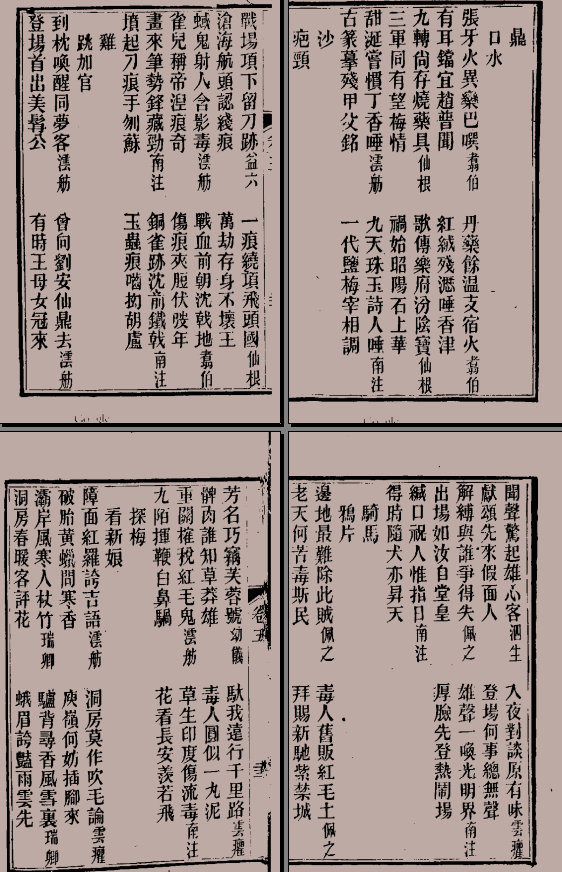 鼎
口水
張牙火異欒巴噀翥伯　丹藥餘溫支宿火翥伯
有耳鐺宜趙普聞　紅絨殘濺唾香津
九轉尙存燒藥具仙根　歌傳樂府汾陰寶仙根
三軍同有望梅情　禍始昭陽石上華
甜涎嘗慣丁香唾澐舫　九天珠玉詩人唾南注
古篆摹殘甲父銘　一代鹽梅宰相調
沙
疤頸
戰場項下留刀跡益六　一痕繞項飛頭國仙根
滄海航頭認綫痕　萬劫存身不壞王
蜮鬼射人含影毒澐舫　戰血前朝沈戟地翥伯
雀兒稱帝湼痕奇　傷痕夾脰伏弢年
畫來筆勢鋒藏勁南注　銅雀跡沈前鐵戟南注
墳起刀痕手刎蘇　玉蟲痕嚙拗胡盧
雞
跳加官
到枕喚醒同夢客澐舫　曾向劉安仙鼎去澐舫
登場首出美髯公　有時王母女冠來
聞聲驚起雄心客泗生　入夜對談原有味雲癯
獻頌先來假面人　登場何事總無聲
解縛與誰爭得失佩之　雄聲一喚光明界南注
出場如汝自堂皇　厚臉先登熱鬧場
緘口祝人惟指日南注
得時隨犬亦昇天
騎馬
鴉片
邊地最難除此賊佩之　毒人舊販紅毛土佩之
老天何苦毒斯民　拜賜新馳紫禁城
卷五
芳名巧竊芙蓉號幼儀　馱我遠行千里路雲癯
髀肉誰知草莽雄　毒人圓似一丸泥
重關榷稅紅毛鬼澐舫　草生印度傷流毒南注
九陌揮鞭白鼻騧　花看長安羨若飛
探梅
看新娘
障面紅羅誇吉語澐舫　洞房莫作吹毛論雲癯
破胎黃蠟問寒香　庾嶺何妨插腳來
灞岸風寒人杖竹瑞卿　驢背尋香風雪裏瑞卿
洞房春暖客評花　蛾眉誇豔雨雲先